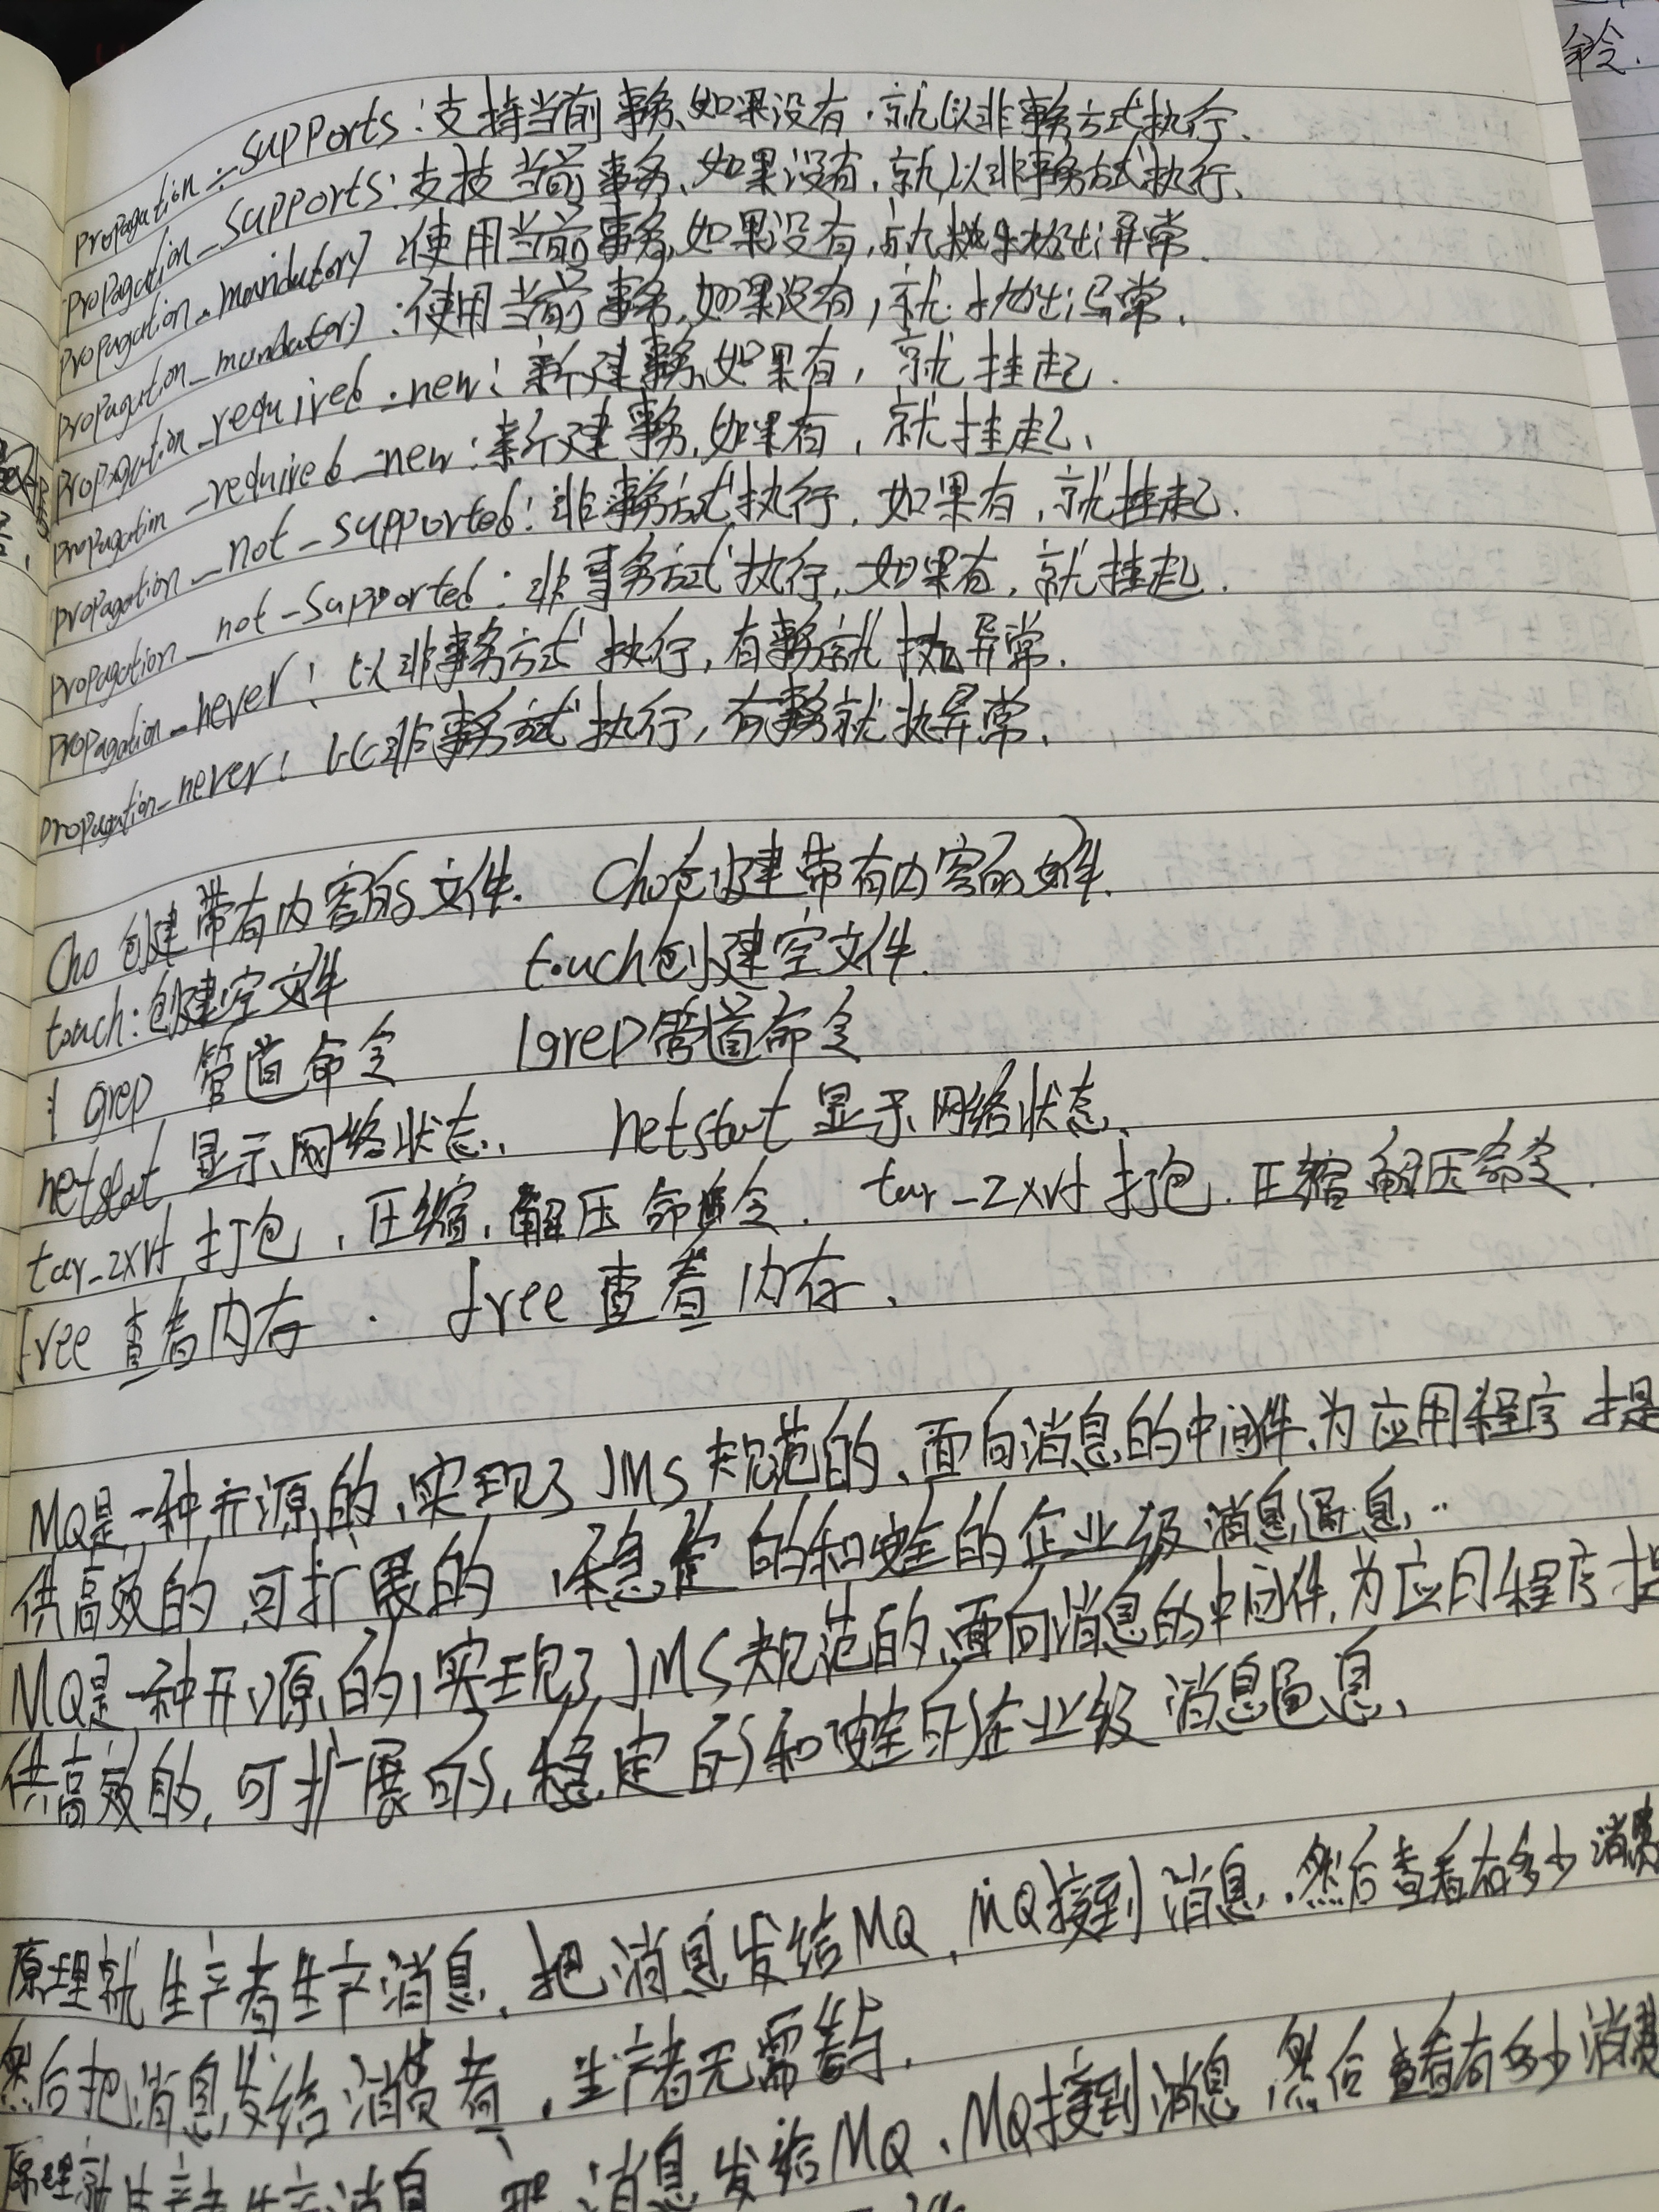 命令.
propagation_supports:支持当前事务、如果没有.就以非事务方式执行.
propagation_supports:支技当前事务、如果没有,就以非事务方式执行、
propagation_mandatory:使用当前事务,如果没有,就抛出异常.
propagation_mandatory:使用当前事务,如果没有,就抛出异常.
propagation_required_new:新建事务,如果有,就挂起.
propagation_required_new:新建事务,如果有,就挂起、
propagation_not_supported:非事务方式执行,如果有,就挂起.
propagation_not_supported:非事务方式执行,如果有,就挂起.
propagation_never:以非事务方式执行,有事务就执异常.
propagation_never:以非事务方式执行,有事务就执异常.
Cho 创建带有内容的文件. Cho创建带有内容的文件.
touch:创建空文件 touch创建空文件.
| grep 管道命令 |grep管道命令
netstat 显示网络状态. netstat 显示网络状态.
tar_zxvf 打包,压缩,解压命令. tar_zxvf 打包.压缩解压命令.
free 查看内存. free 查看内存.
MQ是一种开源的,实现了JMS规范的、面向消息的中间件,为应用程序提
供高效的,可扩展的 稳定的和安全的企业级消息通息..
MQ是一种开源的,实现了JMS规范的,面向消息的中间件,为应用程序提
供高效的,可扩展的,稳定的和安全的企业级消息通息、
原理就生产者生产消息,把消息发给MQ,MQ接到消息.然后查看有多少消费
然后把消息发给消费者,生产者无需等.
原理就生产者生产消息 把消息发给MQ、MQ接到消息 然后查看有多少消费